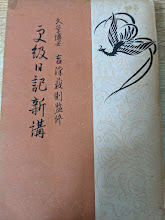 文学博士 吉澤義則監修
更級日記新講